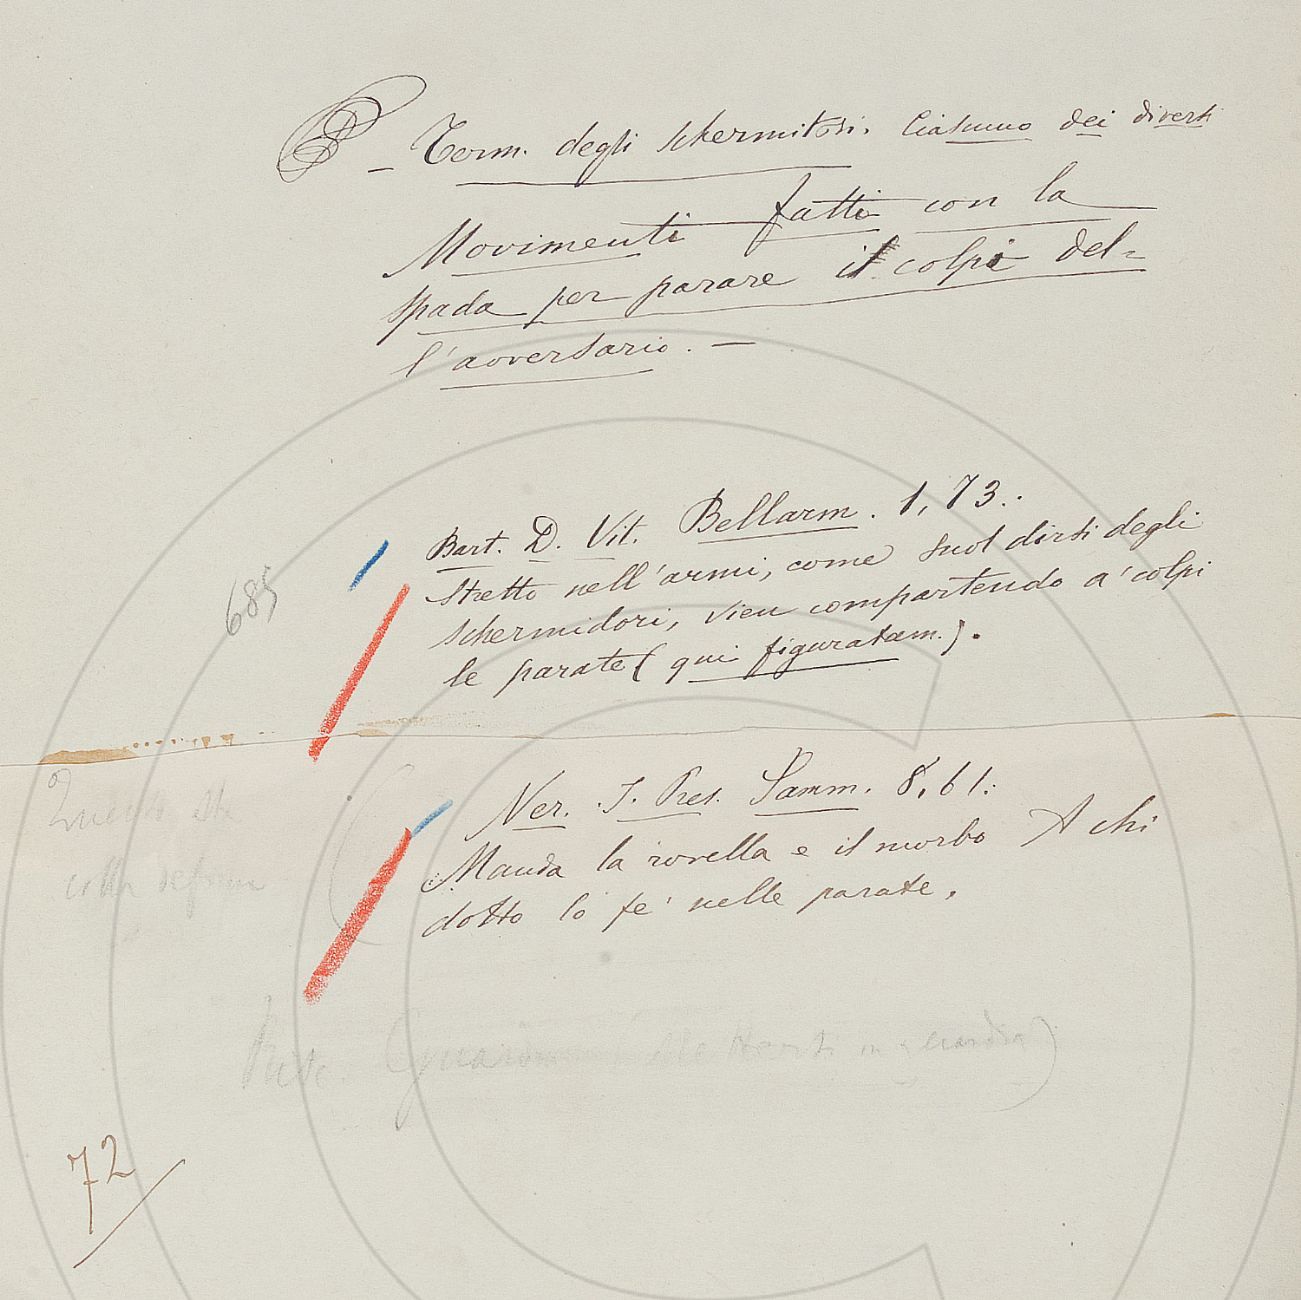 § – Term. degli schermitori. Ciascuno dei diversi
Movimenti fatti con la
spada per parare i colpi del=
l'avversario. –
Bart. D. Vit. Bellarm. 1, 73.:
Stretto nell'armi, come suol dirsi degli
schermidori, vien compartendo a' colpi
le parate (qui figuratam.).
685
Ner. I. Pres. Samm. 8, 61:
Manda la rovella e il morbo A chi
dotto lo fe' nelle parate.
Questo
colla
72